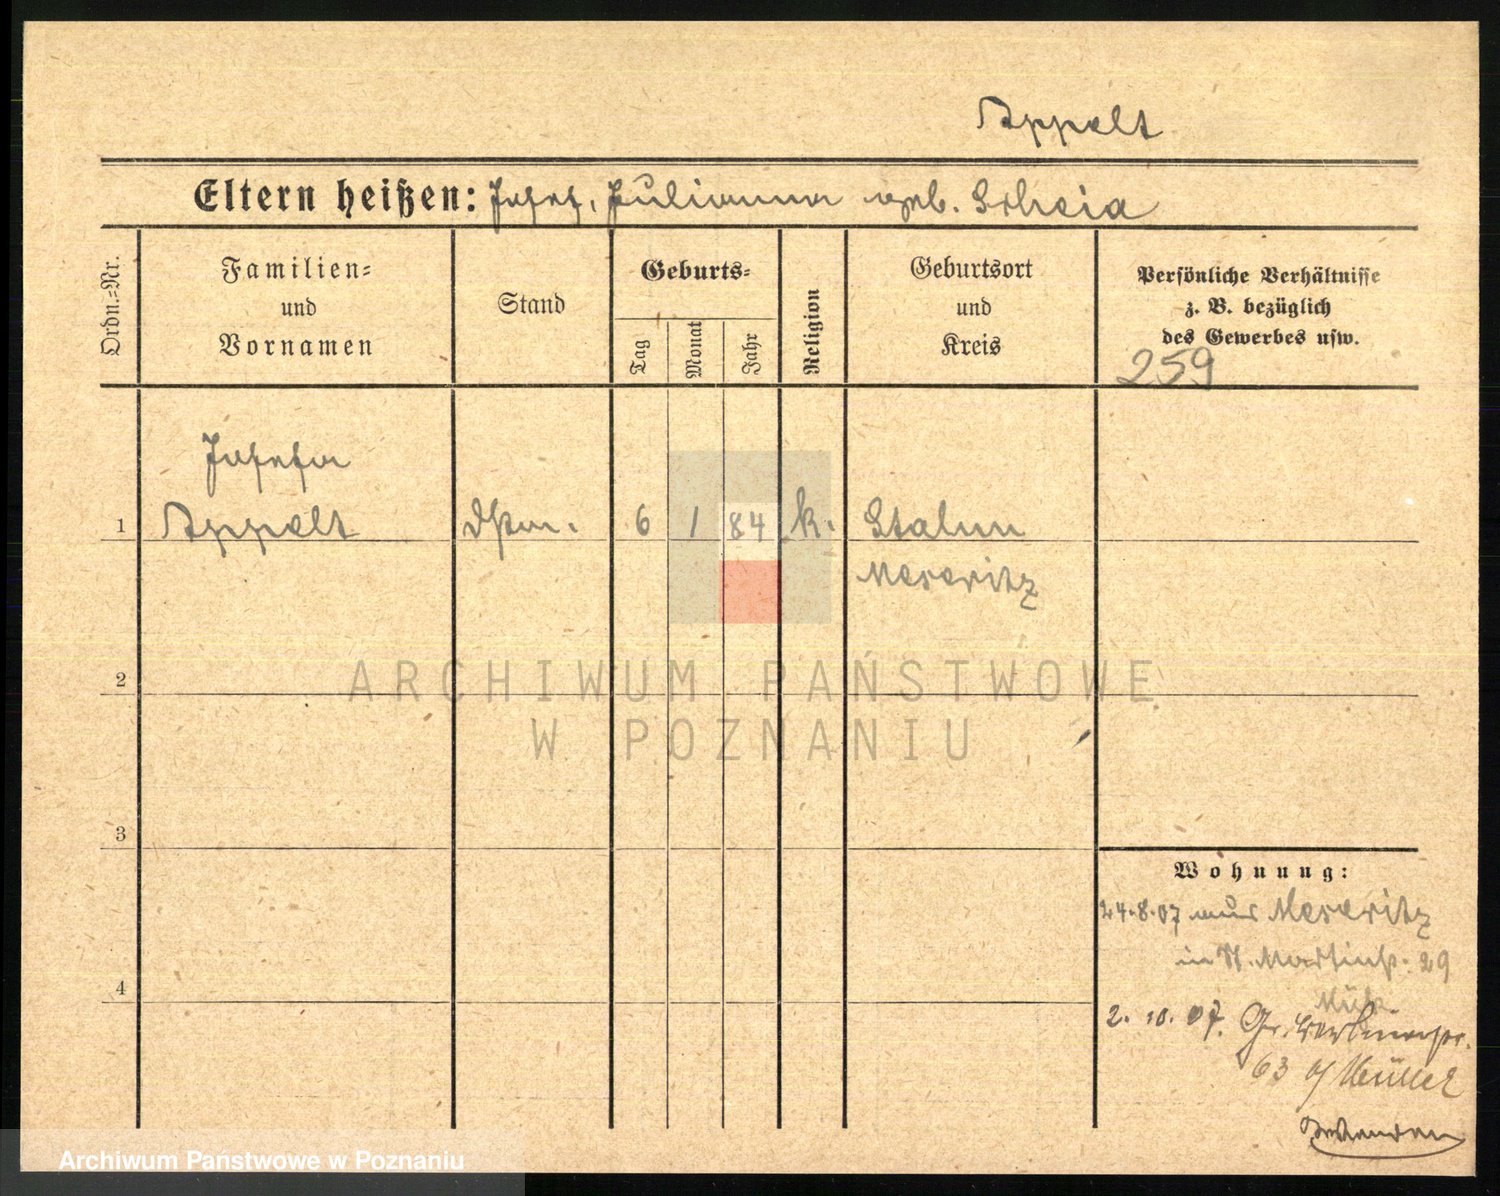 Appelt
Eltern heißen: Josef, Julianna geb. Scheia
Ordn.=Nr.
Familien=
und
Vornamen
Stand
Geburts=
Tag
Monat
Jahr
Religion
Geburtsort
und
Kreis
Persönliche Verhältnisse
z. B. bezüglich
des Gewerbes usw.
259
Josefa
1 Appelt 6 1 84 k. Stalun
Meseritz
2
3
4
Wohnung:
24.8.07 aus Meseritz
in St. Martinstr. 29
2. 10. 07. Gr. 
63 b/ Müller
ARCHIWUM PAŃSTWOWE
W POZNANIU
Archiwum Państwowe w Poznaniu